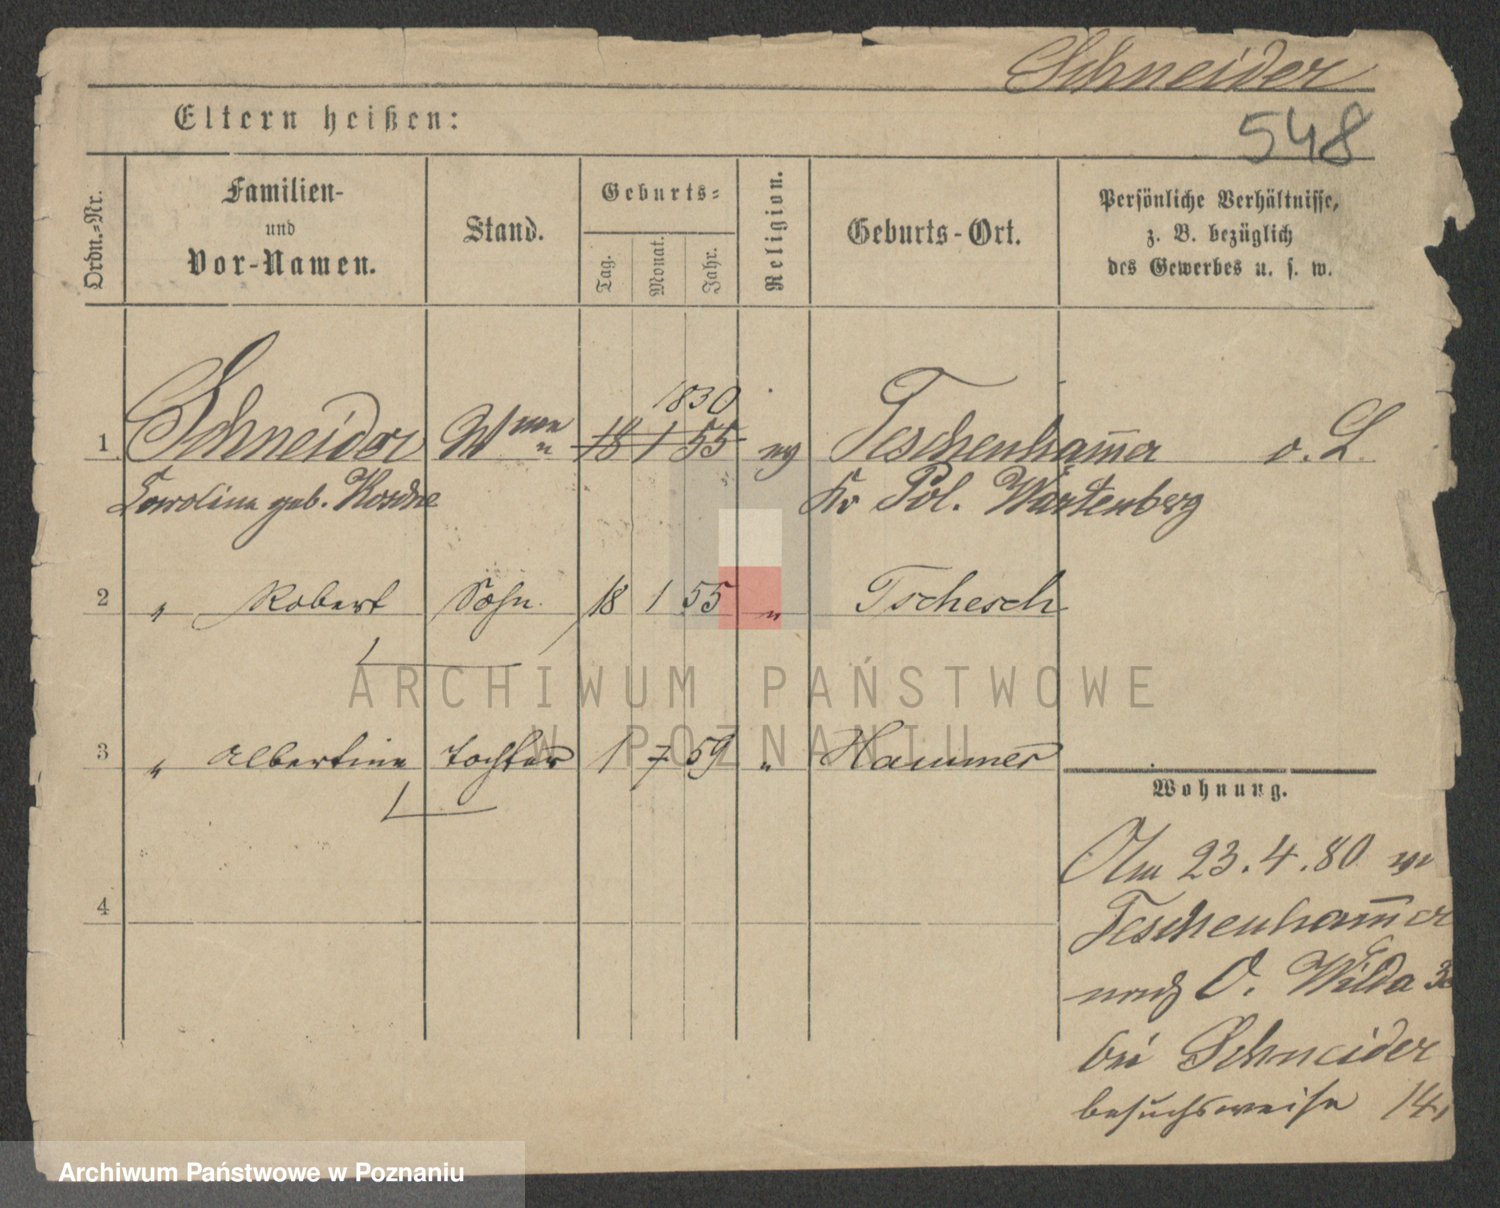 Schneider
Eltern heißen:
548
Ordn.-Nr.
Familien-
und
Vor-Namen.
Stand.
Geburts-
Tag.
Monat.
Jahr.
Religion.
Geburts-Ort.
Persönliche Verhältnisse,
z. B. bezüglich
des Gewerbes u. s. w.
1830
1 Schneider Wwe 18 1 55 Teschenham̄er o. L.
Carolina geb. Kr Pol. Wartenberg
2 " Robert Sohn 18 1 55 " Tschesch
3 " Albertine Tochter 1 7 59 " Hammer
Wohnung.
Am 23.4.80
Teschenham̄er
4
nach O. Wilda
bei Schneider
besuchsweise 14
ARCHIWUM PAŃSTWOWE
W POZNANIU
Archiwum Państwowe w Poznaniu